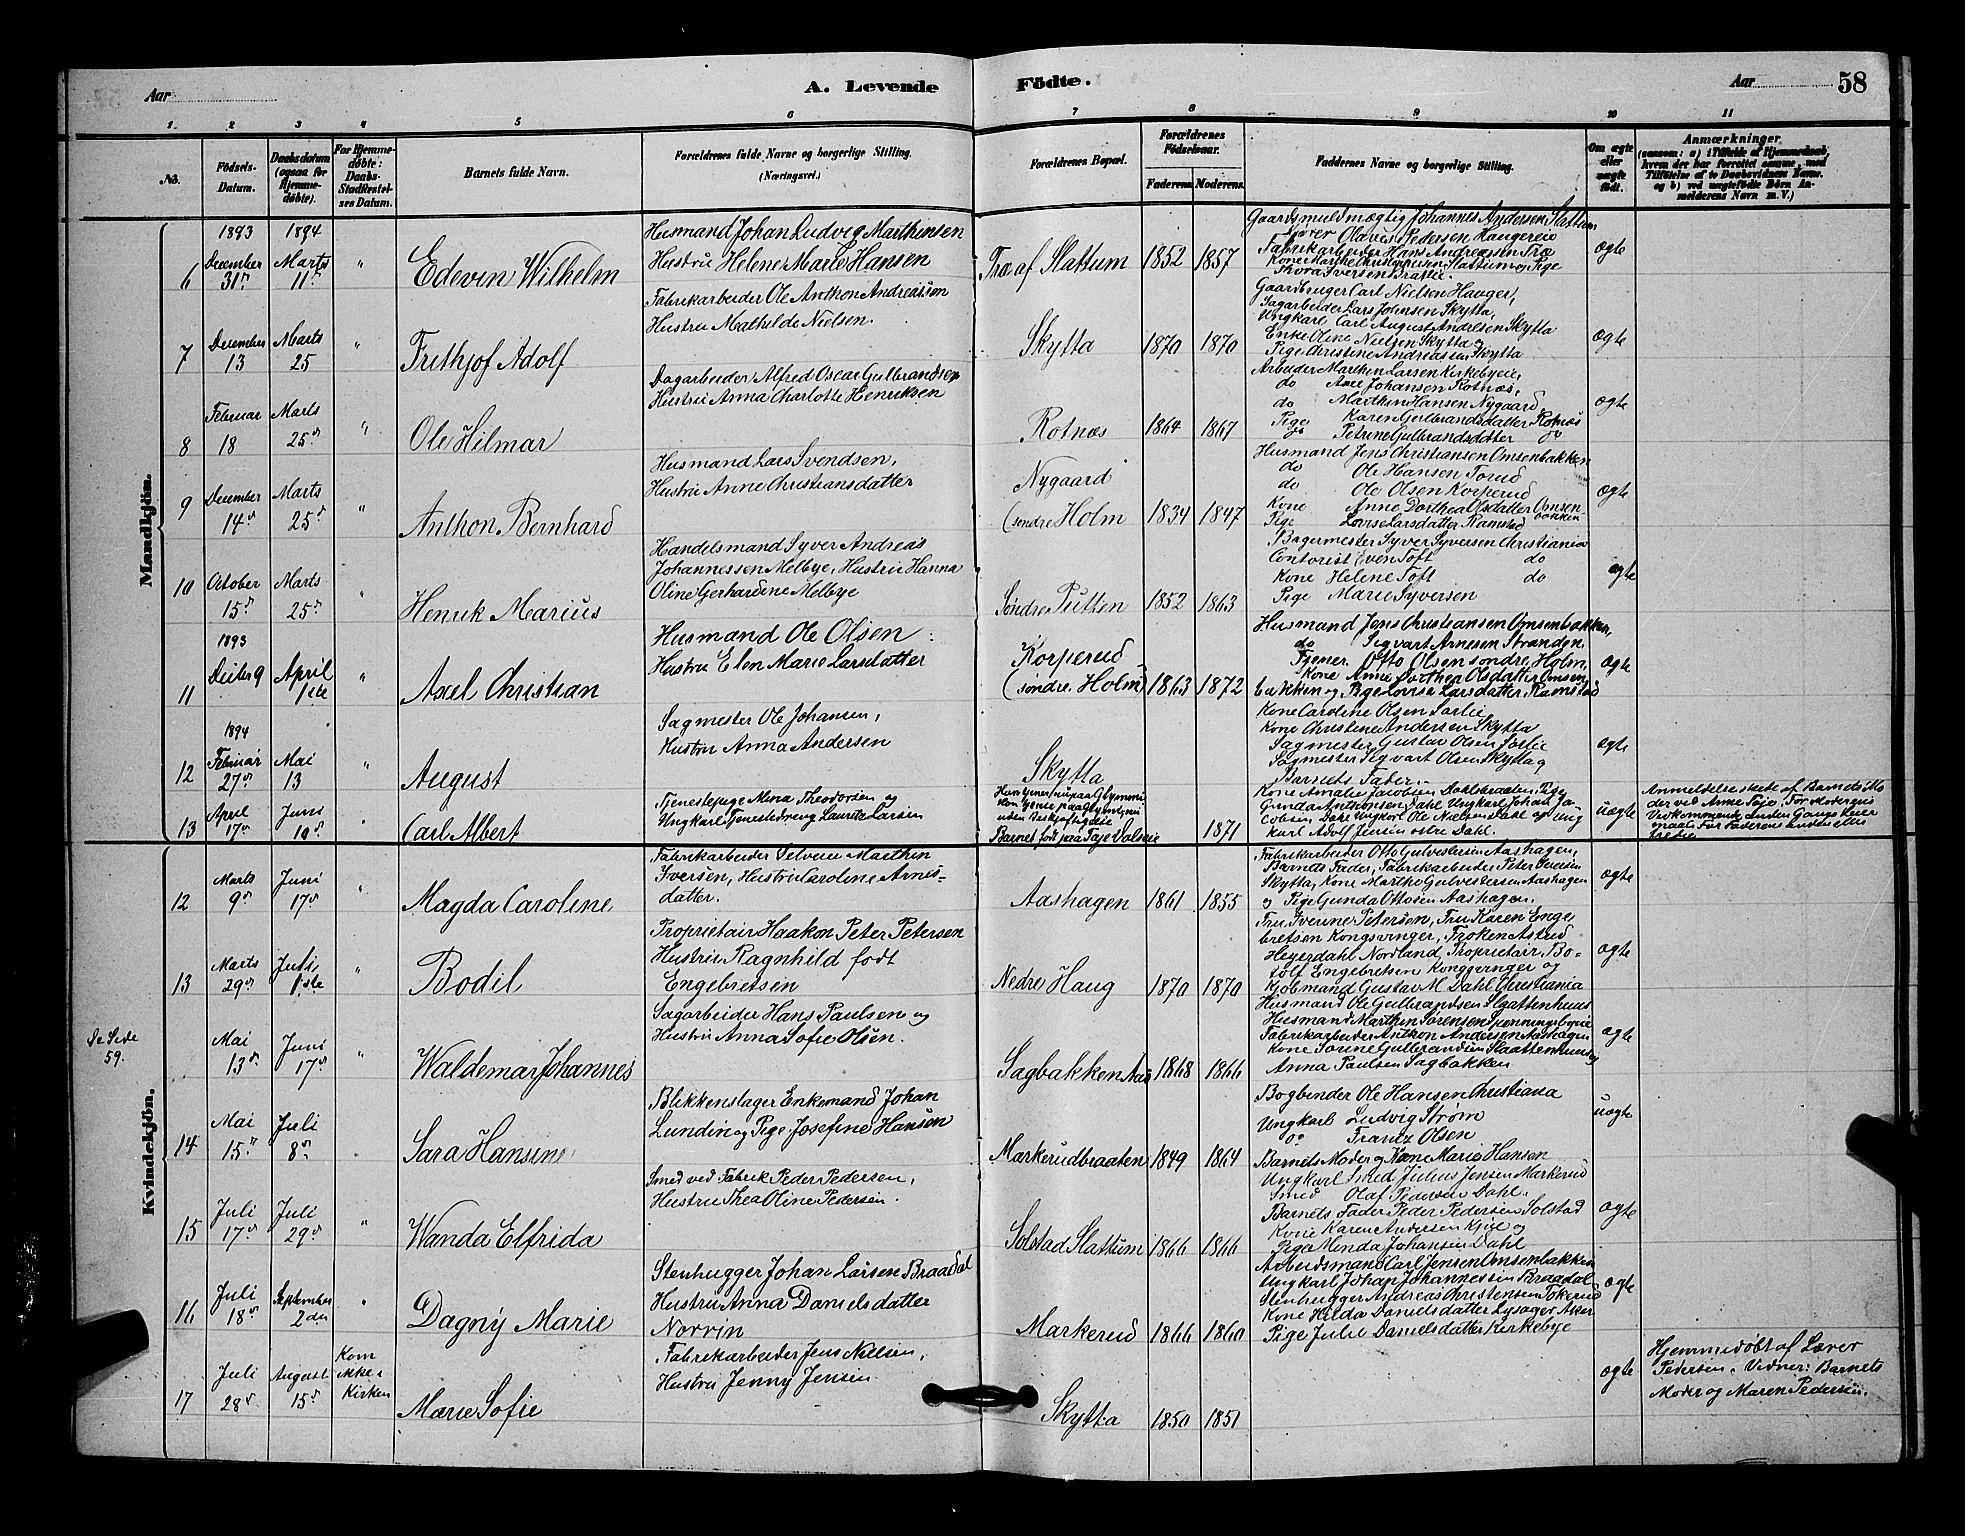 Aar
A. Levende
Födte.
Aar
58
1.
2
3
4
5
6
7
8
9
10
11
No.
Födsels-
Datum.
Daabsdatum
(ogsaa for
Hjemme-
döbte).
For Hjemme-
döbte:
Daabs-
Stadfæstel-
ses Datum.
Barnets fulde Navn.
Forældrenes fulde Navne og borgerlige Stilling.
(Næringsvei.)
Forældrenes Bopæl.
Forældrenes
Födselsaar.
Faderens.
Moderens.
Faddernes Navne og borgerlige Stilling.
Om ægte
eller
uægte
födt.
Anmærkninger
(saasom: a) i Tilfælde af Hjemmedaab,
hvem der har forrettet samme, med
Tilföielse af to Daabsvidners Navne,
og b) ved uægtefödte Börn An-
melderens Navn m.V.)
Mandkjön.
6
1893
December
31
1894
Marts
11
"
Edevin Wilhelm
Husmand Johan Ludvig Marthinsen
Hustru Helene Marie Hansen
Træ af Slattum
1852
1857
Gaardsmuldmægtig Johannes Andersen, Slattum
Olavus Pedersen Haugereie
Fabrikarbeider Hans Andreassen Træ
Slattum og Pige
Thora Iversen
ægte
7
December
13
Marts
25
"
Frithjof Adolf
Fabrikarbeider Ole Anthon Andreassen
Hustru Mathilde Nielsen.
Skytta
1870
1870
Gaardbruger Carl Nielsen Hauger,
Sagarbeider Lars Johnsen Skytta,
Ungkarl Carl August Andresen Skytta
Enke Oline Nielsen Skytta og
Pige Christine Andreassen Skytta
ægte
8
Februar
18
Marts
25
"
Ole Hilmar
Dagarbeider Alfred Oscar Gulbrandsen
Hustru Anna Charlotte Henriksen
Rotnæs
1864
1867
Arbeider Marthin Larsen Kirkebyeie,
do Axel Johansen Rotnæs,
do Marthin Hansen Nygaard
Pige Karen Gulbrandsdatter Rotnæs
do Petrine Gulbrandsdatter do
ægte
9
December
14
Marts
25
"
Anthon Bernhard
Husmand Lars Svendsen,
Hustru Anne Christiansdatter
Nygaard
(søndre Holm
1834
1847
Husmand Jens Christiansen Omsenbakken
do Ole Hansen Torud
do Ole Olsen Korperud
Kone Anne Dorthea Olsdatter Omsen-
bakken
Pige Lovise Larsdatter Ramstad
ægte
10
October
15
Marts
25
"
Henrik Marius
Handelsmand Syver Andreas
Johannessen Melbye, Hustru Hanna
Oline Gerhardine Melbye
Søndre Putten
1852
1863
Bagermester Syver Syversen Christiania
Contorist Even Toft do
Kone Helene Toft do
Pige Marie Syversen
ægte
11
1893
9
April
1ste
"
Axel Christian
Husmand Ole Olsen
Hustru Elen Marie Larsdatter
Korperud
(søndre Holm)
1863
1872
Husmand Jens Christiansen Omsenbakken,
do Sigvart Arnesen Stranden
Tjener Otto Olsen søndre Holm,
Kone Anne Dorthea Olsdatter Omsen-
bakken og Pige Lovise Larsdatter Ramstad
ægte
12
1894
Februar
27
Mai
13
"
August
Sagmester Ole Johansen,
Hustru Anna Andersen
Skytta
Kone Caroline Olsen Sørlie
Kone Christine Andersen Skytta
Sagmester Gustav Olsen Sørlie
Sagmester Sigvart Olsen Skytta og
Barnets Fader.
ægte
13
April
17
Juni
10
Carl Albert
Tjenestepige Mina Theodorsen og
Ungkarl Tjenestedreng Lauritz Larsen
uden Beskjæftigelse
Barnet født paa
1871
Kone Amalie Jacobsen Dahlsbraaten, Pige
Gunda Anthonsen Dahl Ungkarl Johan Ja-
cobsen Dahl Ungkarl Ole Nielsen Dahl og Ung
karl Adolf Jensen østre Dahl.
uægte
Anmeldelse skede af Barnets Mo
der ved Anne For Moderens
Vedkommende anden Gangs Leier
maal For Faderens
Kvindekjön.
12
Marts
9
Juni
17
"
Magda Caroline
Fabrikarbeider Marthin
Iversen, Hustru Caroline Arnes-
datter.
Aashagen
1861
1855
Fabrikarbeider Otto Aashagen,
Barnets Fader, Fabrikarbeider Peter Iversen
Skytta, Kone Marthe Aashagen
og Pige Gunda Ottosen Aashagen.
ægte
13
Marts
29
Juli
1ste
"
Bodil
Proprietair Haakon Peter Petersen
Hustru Ragnhild født
Engebretsen
Nedre Haug
1870
1870
Fru Iverine Petersen, Fru Karen Enge
bretsen Kongsvinger, Frøken Astrid
Heyerdahl Nordland, Proprietair Bo-
tolf Engebretsen Kongsvinger og
Kjøbmand Gustav M. Dahl Christiania
ægte
Se Side
59.
Mai
13
Juni
17
"
Waldemar Johannes
Sagarbeider Hans Paulsen og
Hustru Anna Sofie Olsen.
Sagbakken Aas
1868
1866
Husmand Ole Gulbrandsen Slaattenhuus
Husmand Marthin Sørensen
Fabrikarbeider Anthon Andersen Aashagen
Kone Gulbrandsen Slaattenhuus og
Anna Paulsen Sagbakken
ægte
14
Mai
15
Juli
8
Sara Hansine
Blikkenslager Enkemand Johan
Lundin og Pige Josefine Hansen
Markerudbraaten
1849
1864
Bogbinder Ole Hansen Christiana
Ungkarl Ludvig Strøm
do Frantz Olsen
Barnets Moder og Kone Marie Hansen
uægte
15
Juli
17
Juli
29
"
Wanda Elfrida
Smed ved Fabrik Peder Pedersen,
Hustru Thea Oline Pedersen.
Solstad Slattum
1866
1866
Ungkarl Smed Julius Jensen Markerud
Smed Olaf Pedersen Dahl.
Barnets Fader Peder Pedersen Solstad
Kone Karen Andersen og
Pige Minda Johansen Dahl
ægte
16
Juli
18
September
2den
"
Dagny Marie
Stenhugger Johan Larsen Braadal
Hustru Anna Danielsdatter
Norvin
Markerud
1866
1860
Arbeidsmand Carl Jensen Omsenbakken
Ungkarl Johan Johannessen Braadal
Stenhugger Andreas Christensen Tokerud
Kone Hilda Danielsdatter Lysager Aker
Pige Julie Danielsdatter Kirkebye
ægte
17
Juli
28
August
15
Kom
ikke i
Kirken
Marie Sofie
Fabrikarbeider Jens Nielsen,
Hustru Jenny Jensen
Skytta
1850
1851
ægte
Hjemmedøbt af Lærer
Pedersen. Vidner: Barnets
Moder og Maren Pedersen.